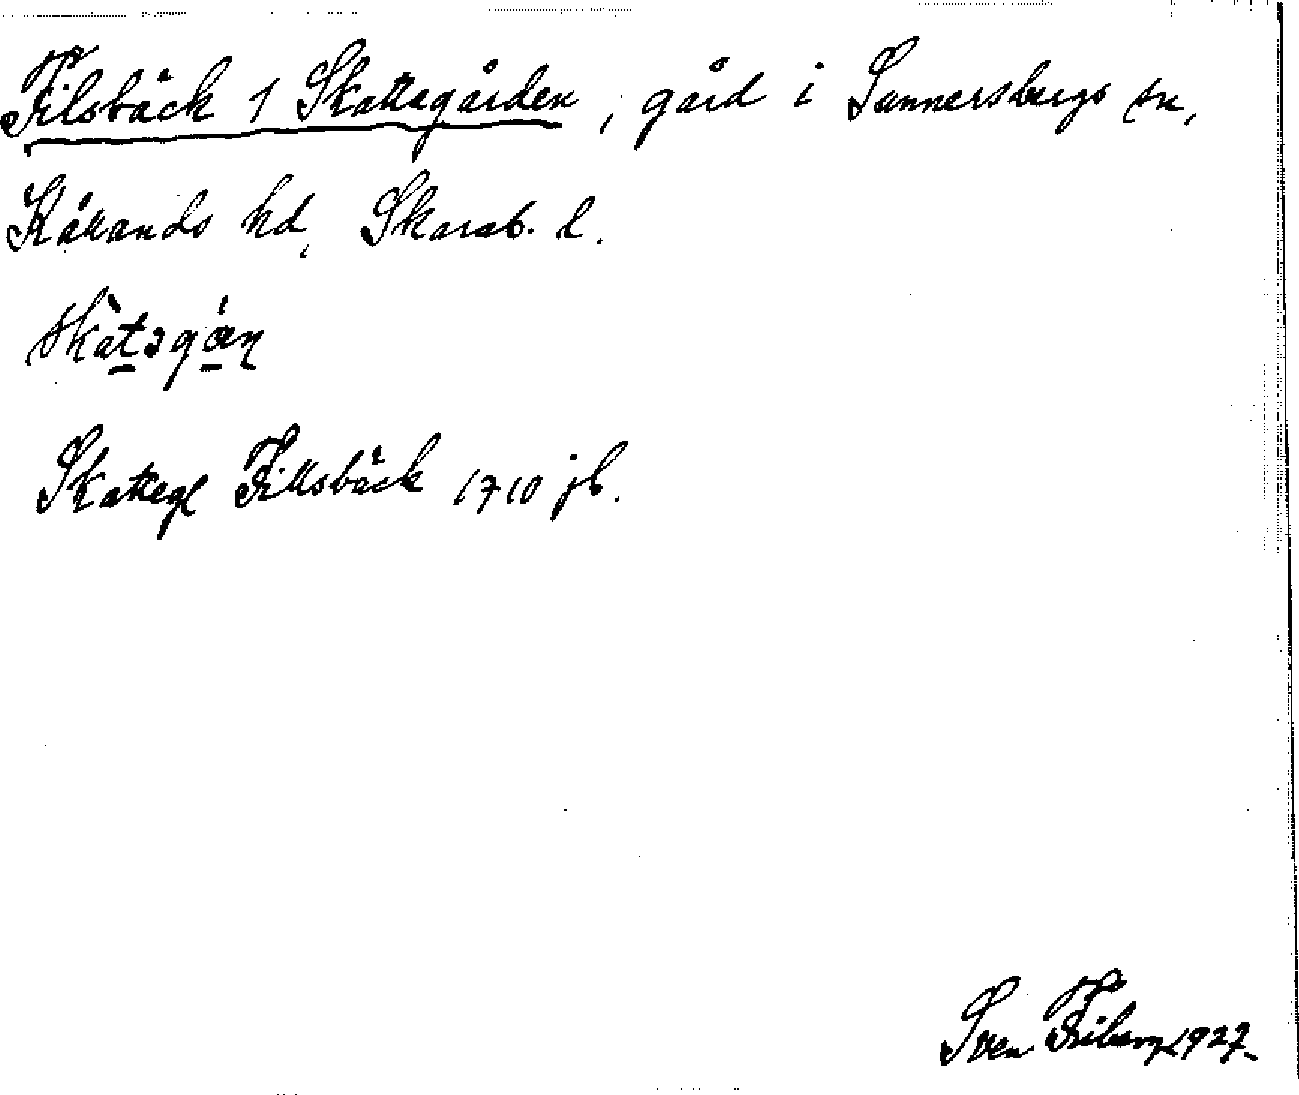 Filsbäck 1 Skattegården, gård i Sunnersbergs sn,
Kållands hd, Skarab. l.
skàtəgán
Skattegl Fillsbäck 1710 jb.
Sven Friberg 1927